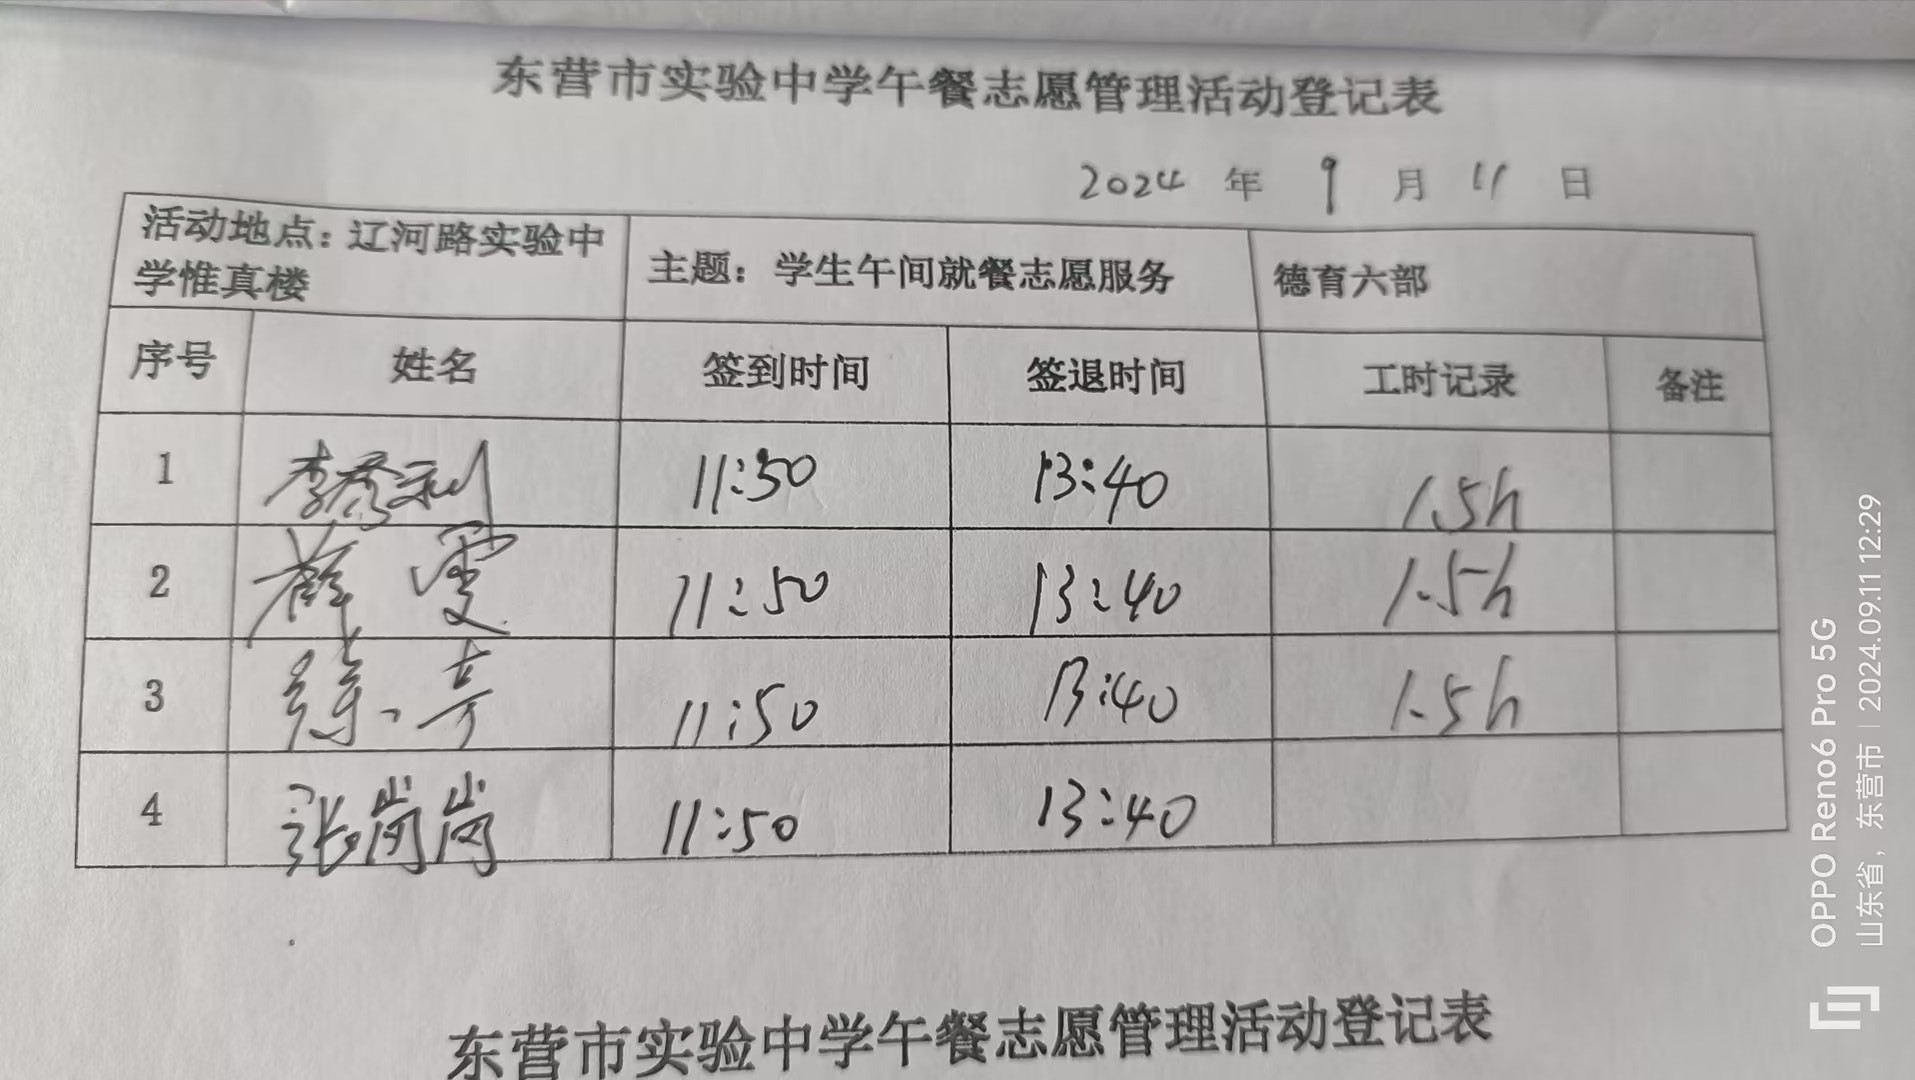 东营市实验中学午餐志愿管理活动登记表
2024 年 9 月 11 日
活动地点：辽河路实验中
学惟真楼
主题：学生午间就餐志愿服务
德育六部
序号 姓名 签到时间 签退时间 工时记录 备注
1 李秀利 11:50 13:40 1.5h
2 薛雯 11:50 13:40 1.5h
3 11:50 13:40 1.5h
4 张岗岗 11:50 13:40
东营市实验中学午餐志愿管理活动登记表
OPPO Reno6 Pro 5G
山东省，东营市 | 2024.09.11 12:29